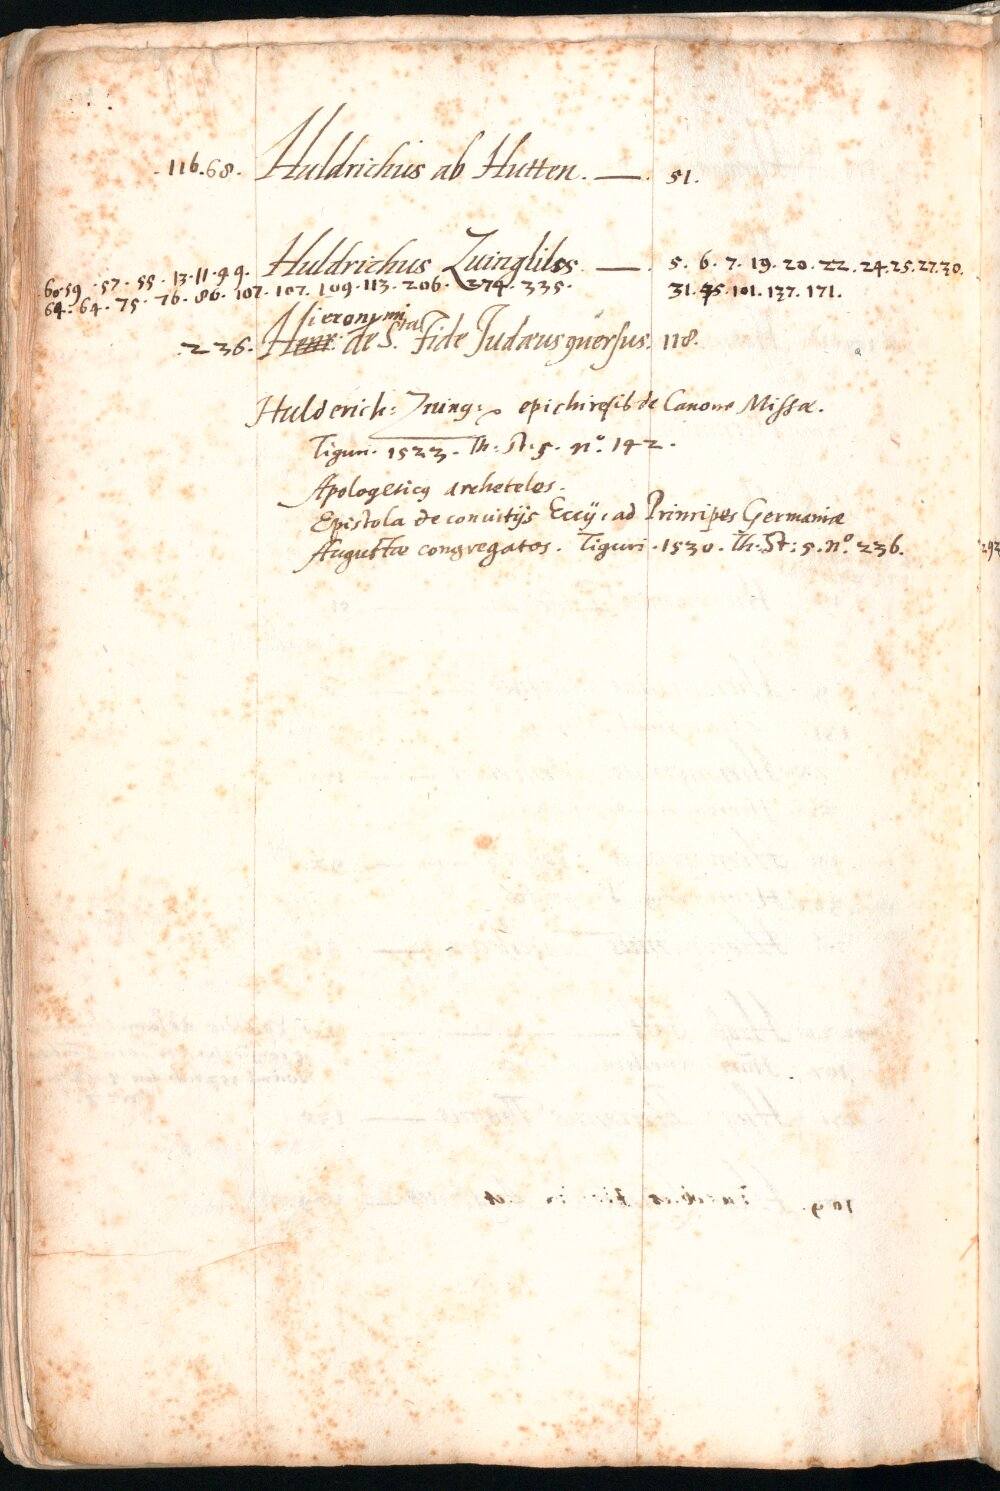 116.68. Huldrichus ab Hutten. — 51.
60.59.57.55.13.11.99. Huldrichus Zuinglius — 5. 6. 7. 19. 20. 22. 24.25.27.30.
64.64.75.76.86.107.107.109.113.206.274.335. 31.45.101.137.171.
Hieronymi
236. Henr: de S.ta Fide Judæus conuersus. 118.
Hulderich: Zuing: epichiresis de Canone Missæ.
Tiguri. 1523. Th. St. 5. no. 142.
Apologeticus archeteles.
Epistola de conuitijs Eccij, ad Principes Germaniæ
Augustæ congregatos. Tiguri. 1530. Th. St: 5. no. 236.